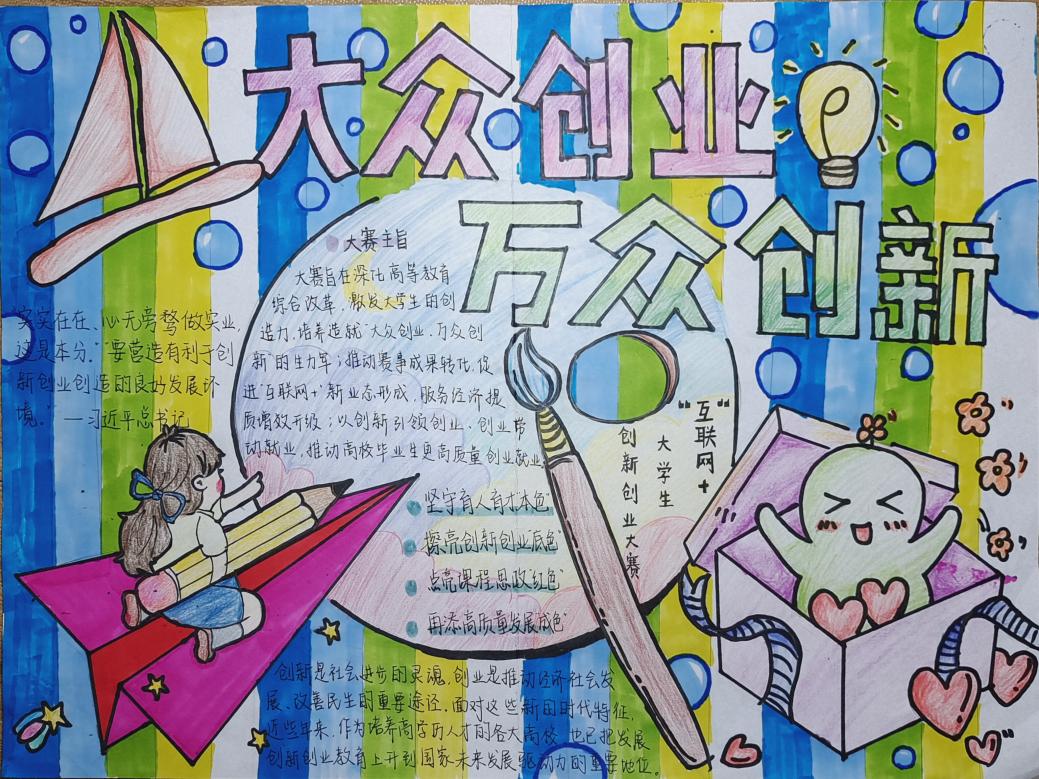 大众创业
万众创新
大赛主旨
大赛旨在深化高等教育
综合改革，激发大学生的创
造力，培养造就"大众创业、万众创
新"的生力军；推动赛事成果转化，促
进"互联网+"新业态形成，服务经济提
质增效升级；以创新引领创业、创业带
动就业，推动高校毕业生更高质量创业就业。
"坚守育人育才本色"
"擦亮创新创业底色"
"点亮课程思政红色"
"再添高质量发展成色"
"互联网+"
大学生
创新创业大赛
"实实在在、心无旁骛做实业，
这是本分。""要营造有利于创
新创业创造的良好发展环
境。"——习近平总书记
创新是社会进步的灵魂，创业是推动经济社会发
展、改善民生的重要途径。面对这些新的时代特征，
近些年来，作为培养高学历人才的各大高校，也已把发展
创新创业教育上升到国家未来发展驱动力的重要地位。